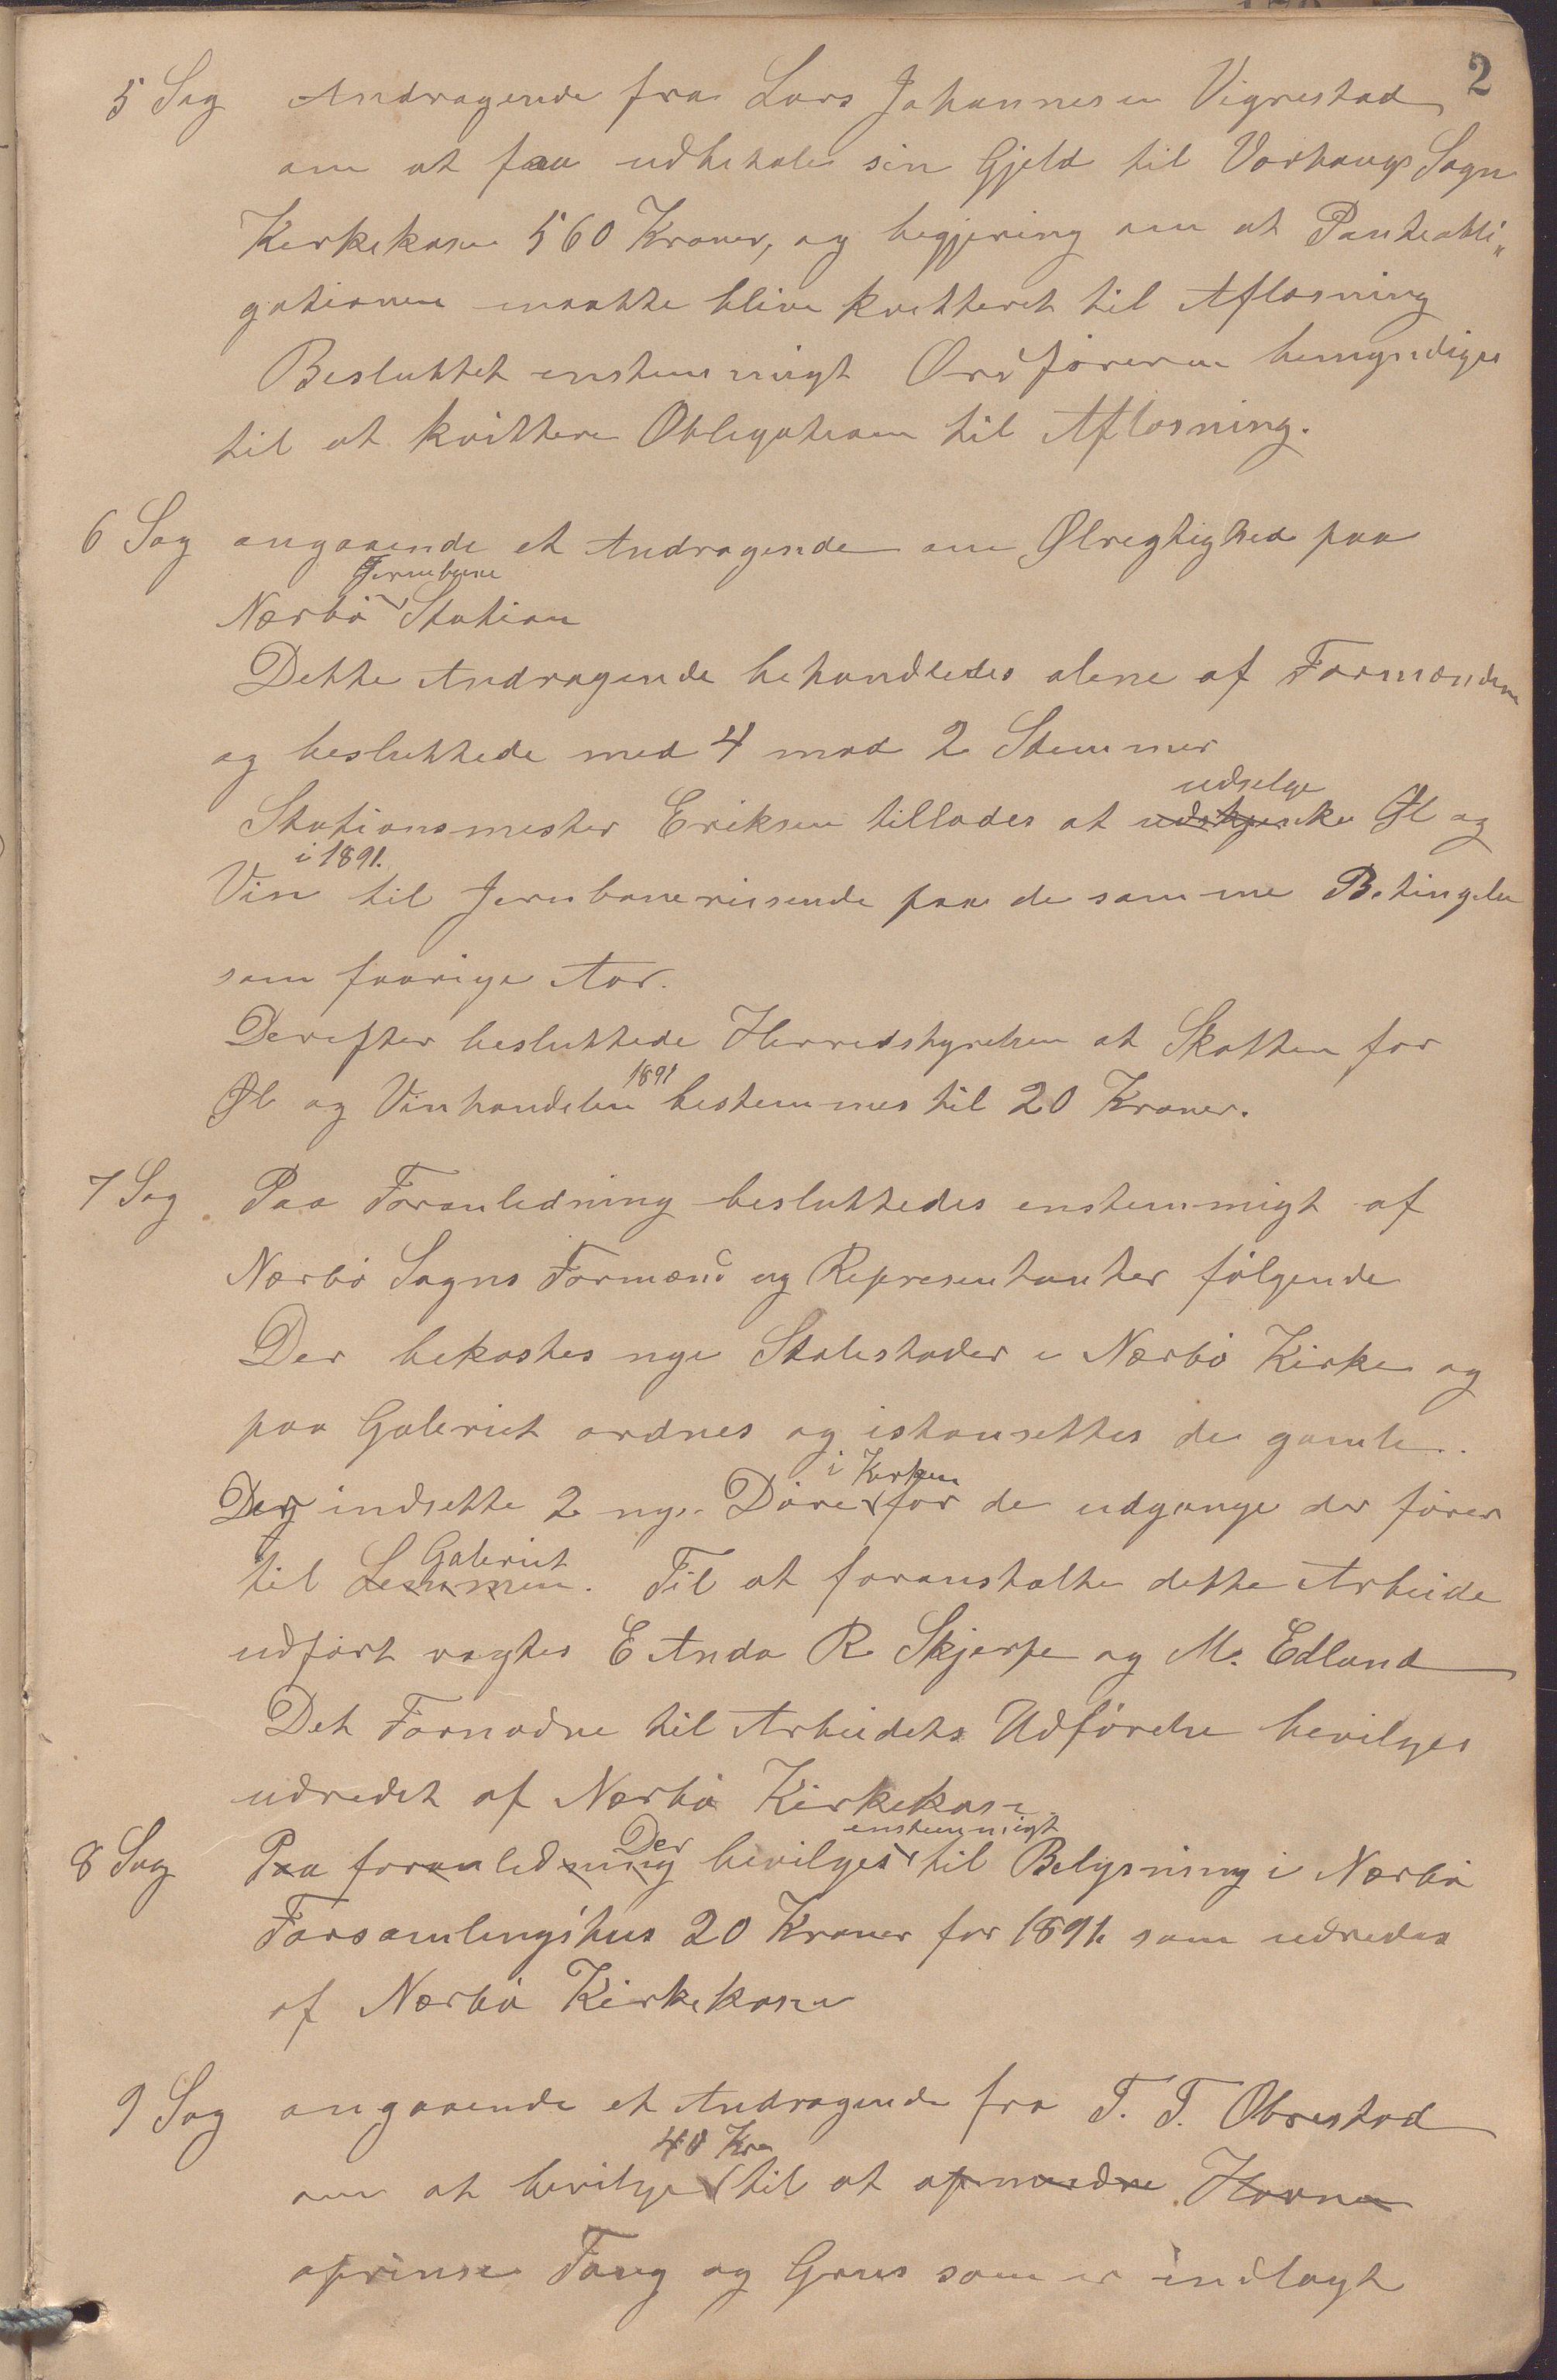 2
5 Sag Andragende fra Lars Johannesen Vigrestad
om at faa udbetale sin Gjeld til Varhaugs Sogn
Kirkekase 560 Kroner, og begjering om at Panteobli„
gationen maatte blive kvitteret til Aflösning
Besluttet enstemmigt Ordföreren bemyndiges
til at kvittere Obligationen til Aflösning.
6 Sag angaaende et Andragende om Ølregtighed paa
Jernbane
Nærbö Station
Dette Andragende behandledes alene af Formændene
og besluttede med 4 mod 2 Stemmer
udselge
Stationsmester Eriksen tillades at udskjenke Øl og
i 1891.
Vin til Jernbanereisende paa de samme Betingelser
som forrige Aar.
Derefter besluttede Herredstyrelsen at Skatten for
1891
Øl og Vinhandelen bestemmes til 20 Kroner.
7 Sag Paa Foranledning besluttedes enstemmigt af
Nærbö Sogns Formænd og Representanter fölgende
Der bekostes nye Stolestader i Nærbö Kirke og
paa Galeriet ordnes og istansettes de gamle.
i Kirken
Der indsette 2 nye Döre for de udgange der förer
Galeriet
til Lemmen. Til at foranstalte dette Arbeide
udfört vagtes E Anda R Skjerpe og M. Edland
Det Fornödne til Arbeidets Udförelse bevilges
udredet af Nærbö Kirkekase
Der enstemmigt
8 Sag Paa foranledning bevilges til Belysning i Nærbö
Forsamlingshus 20 Kroner for 1891 som udredes
af Nærbö Kirkekase
9 Sag angaaende et Andragende fra T. T. Obrestad
40 Kro
om at bevilge til at opmudre Havnen
oprense Taug og Grus som er indlagt